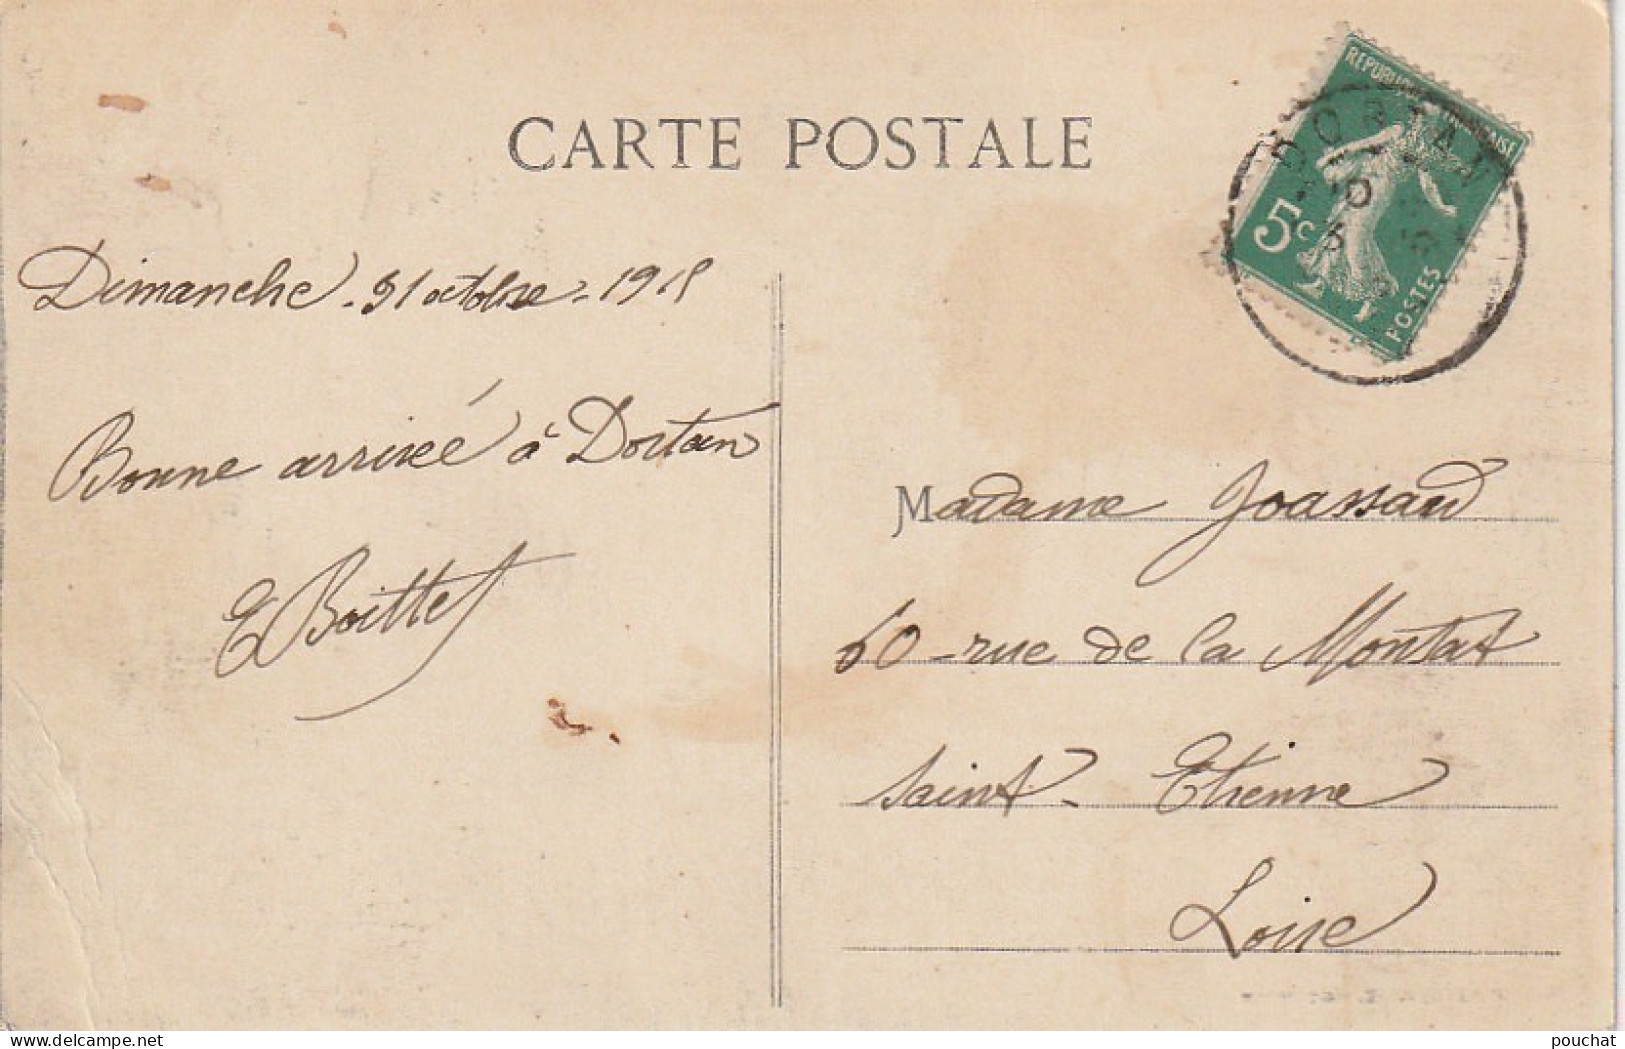 CARTE POSTALE
REPUBLIQUE FRANÇAISE
5c
POSTES
DORTAN
Dimanche. 31 octobre. 1915
Bonne arrivée à Dortan
E Boittet
Madame Joassard
60 - rue de la Montat
Saint-Etienne
Loire
pouchat